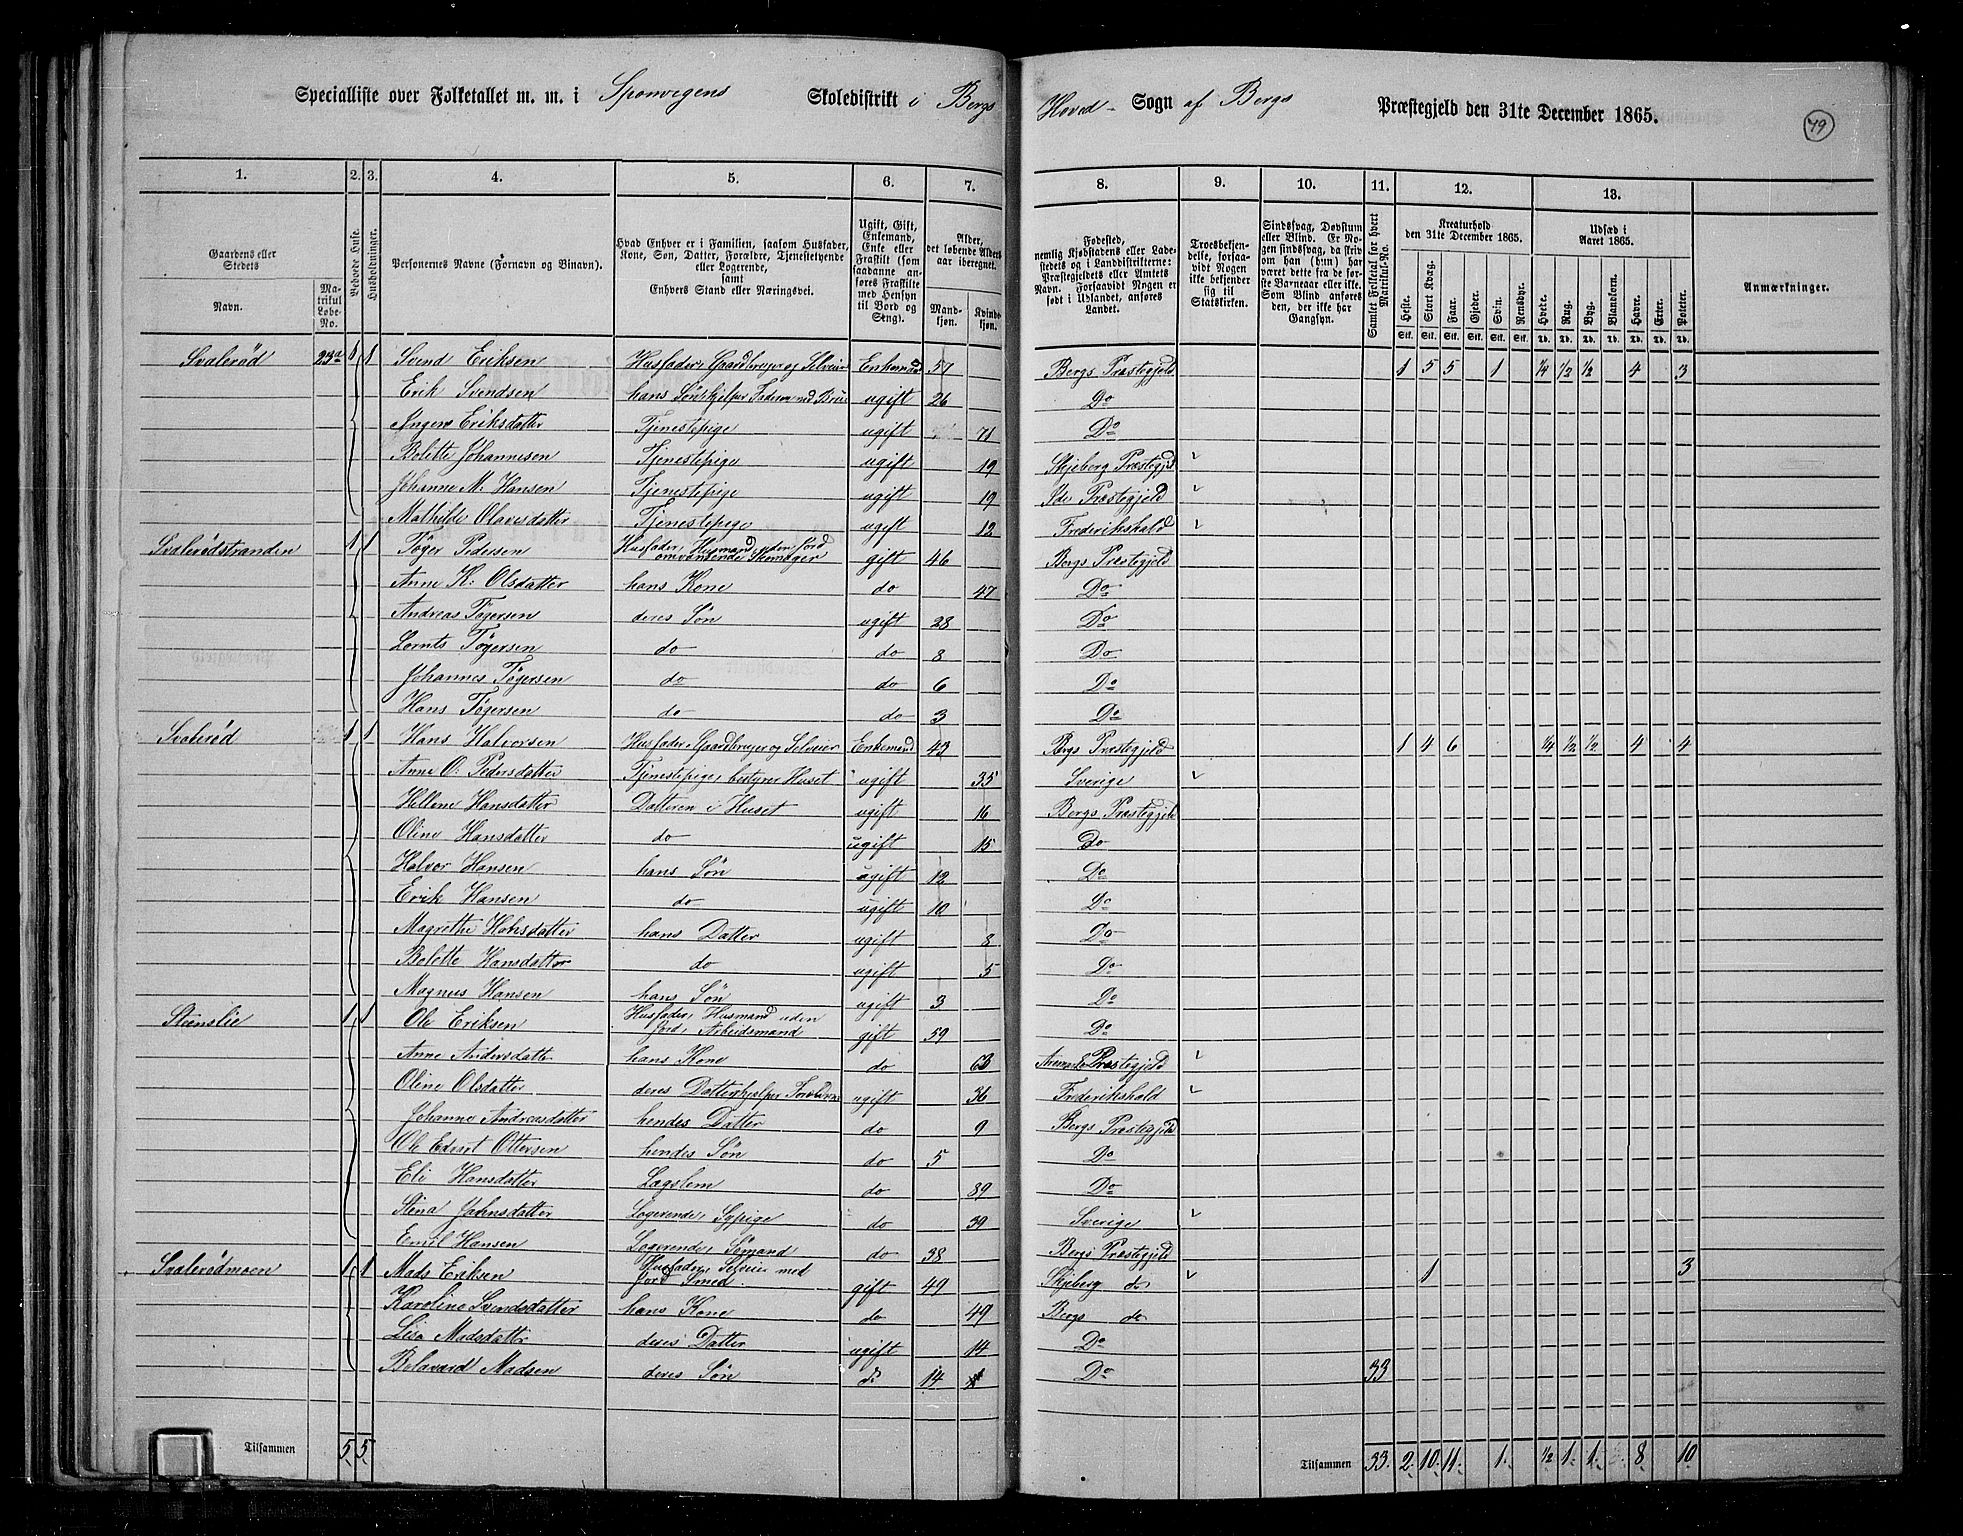 Specialliste over Folketallet m. m. i Sponvigens Skoledistrikt i Bergs Hoved- Sogn af Bergs Præstegjeld den 31te December 1865.
79
1. 2. 3. 4. 5. 6. 7. 8. 9. 10. 11. 12. 13.
Gaardens eller Stedets
Navn.
Matrikul Løbe-No.
Beboede Huse.
Husholdninger.
Personernes Navne (Fornavn og Binavn).
Hvad Enhver er i Familien, saasom Husfader, Kone, Søn, Datter, Forældre, Tjenestetyende eller Logerende, samt Enhvers Stand eller Næringsvei.
Ugift, Gift, Enkemand, Enke eller Fraskilt (som saadanne anføres Fraskilte med Hensyn til Bord og Seng).
Alder, det løbende Alders aar iberegnet.
Mandkjøn.
Kvindekjøn.
Fødested, nemlig Kjøbstadens eller Ladestedets og i Landdistrikterne: Præstegjeldets eller Amtets Navn. Forsaavidt Nogen er født i Udlandet, anføres Landet.
Troesbekjendelse, forsaavidt Nogen ikke bekjender sig til Statskirken.
Sindssvag, Døvstum eller Blind. Er Nogen sindssvag, da skrives om han (hun) har været dette fra de første Barneaar eller ikke. Som Blind anføres den, der ikke har Gangsyn.
Samlet Folketal for hvert Matrikul-No.
Kreaturhold den 31te December 1865.
Heste. Stort Kvæg. Faar. Gjeder. Svin. Rensdyr.
Stk. Stk. Stk. Stk. Stk. Stk.
Udsæd i Aaret 1865.
Hvede. Rug. Byg. Blandkorn. Havre. Erter. Poteter.
Td. Td. Td. Td. Td. Td. Td.
Anmærkninger.
Svalerød 23a 1 1 Svend Eriksen Husfader, Gaardbruger og Selveier Enkemand 57 Bergs Præstegjeld 1 5 5 1 1/4 1/2 1/2 4 3
Erik Svendsen hans Søn, hjelper Faderen med Brug ugift 26 Do
Inger Eriksdatter Tjenestepige ugift 71 Do
Bolette Johannesen Tjenestepige ugift 19 Skjeberg Præstegjeld
Johanne M. Hansen Tjenestepige ugift 19 Ide Præstegjeld
Mathilde Olavesdatter Tjenestepige ugift 12 Frederikshald
Svalerødstranden 1 1 Tøger Pedersen Husfader, Husmand uden Jord omvankende Skomager gift 46 Bergs Præstegjeld
Anne K. Olsdatter hans Kone do 47 Do
Andreas Tøgersen deres Søn ugift 28 Do
Lornts Tøgersen do do 8 Do
Johannes Tøgersen do do 6 Do
Hans Tøgersen do do 3 Do
Svalerød 1 1 Hans Halvorsen Husfader, Gaardbruger og Selveier Enkemand 43 Bergs Præstegjeld 1 4 6 1/4 1/2 1/2 4 4
Anne O. Pedersdatter Tjenestepige, bestyrer Huset ugift 35 Sverige
Hellene Hansdatter Datteren i Huset ugift 16 Bergs Præstegjeld
Oline Hansdatter do ugift 15 Do
Halvor Hansen hans Søn ugift 12 Do
Erik Hansen do ugift 10 Do
Magrethe Hansdatter hans Datter ugift 8 Do
Bolette Hansdatter do ugift 5 Do
Magnus Hansen hans Søn ugift 3 Do
Steenslie 1 1 Ole Eriksen Husfader, Husmand uden Jord, Arbeidsmand gift 59 Do
Anne Andersdatt hans Kone do 63 Aremark Præstegjeld
Oline Olsdatter deres Datter, hjelper Forældrene ugift 36 Frederikshald
Johanne Andreasdatter hendes Datter do 9 Bergs Præstegjeld
Ole Edvart Ottersen hendes Søn do 5 Do
Eli Hansdatter Lægslem do 89 Do
Stina Jahnsdatter Logerende, Sypige do 39 Sverige
Emil Hansen Logerende, Sømand do 38 Bergs Præstegjeld
Svalerødmoen 1 1 Mads Eriksen Husfader, Selveier med Jord Smed gift 49 Skjeberg do 1 3
Karoline Svendsdatter hans Kone do 49 Bergs do
Lisa Madsdatter deres Datter ugift 14 Do
Madsen deres Søn do 14 Do 33
Tilsammen 5. 5.
Tilsammen 33. 2. 10. 11. 1. 1/2 1. 1. 8. 10